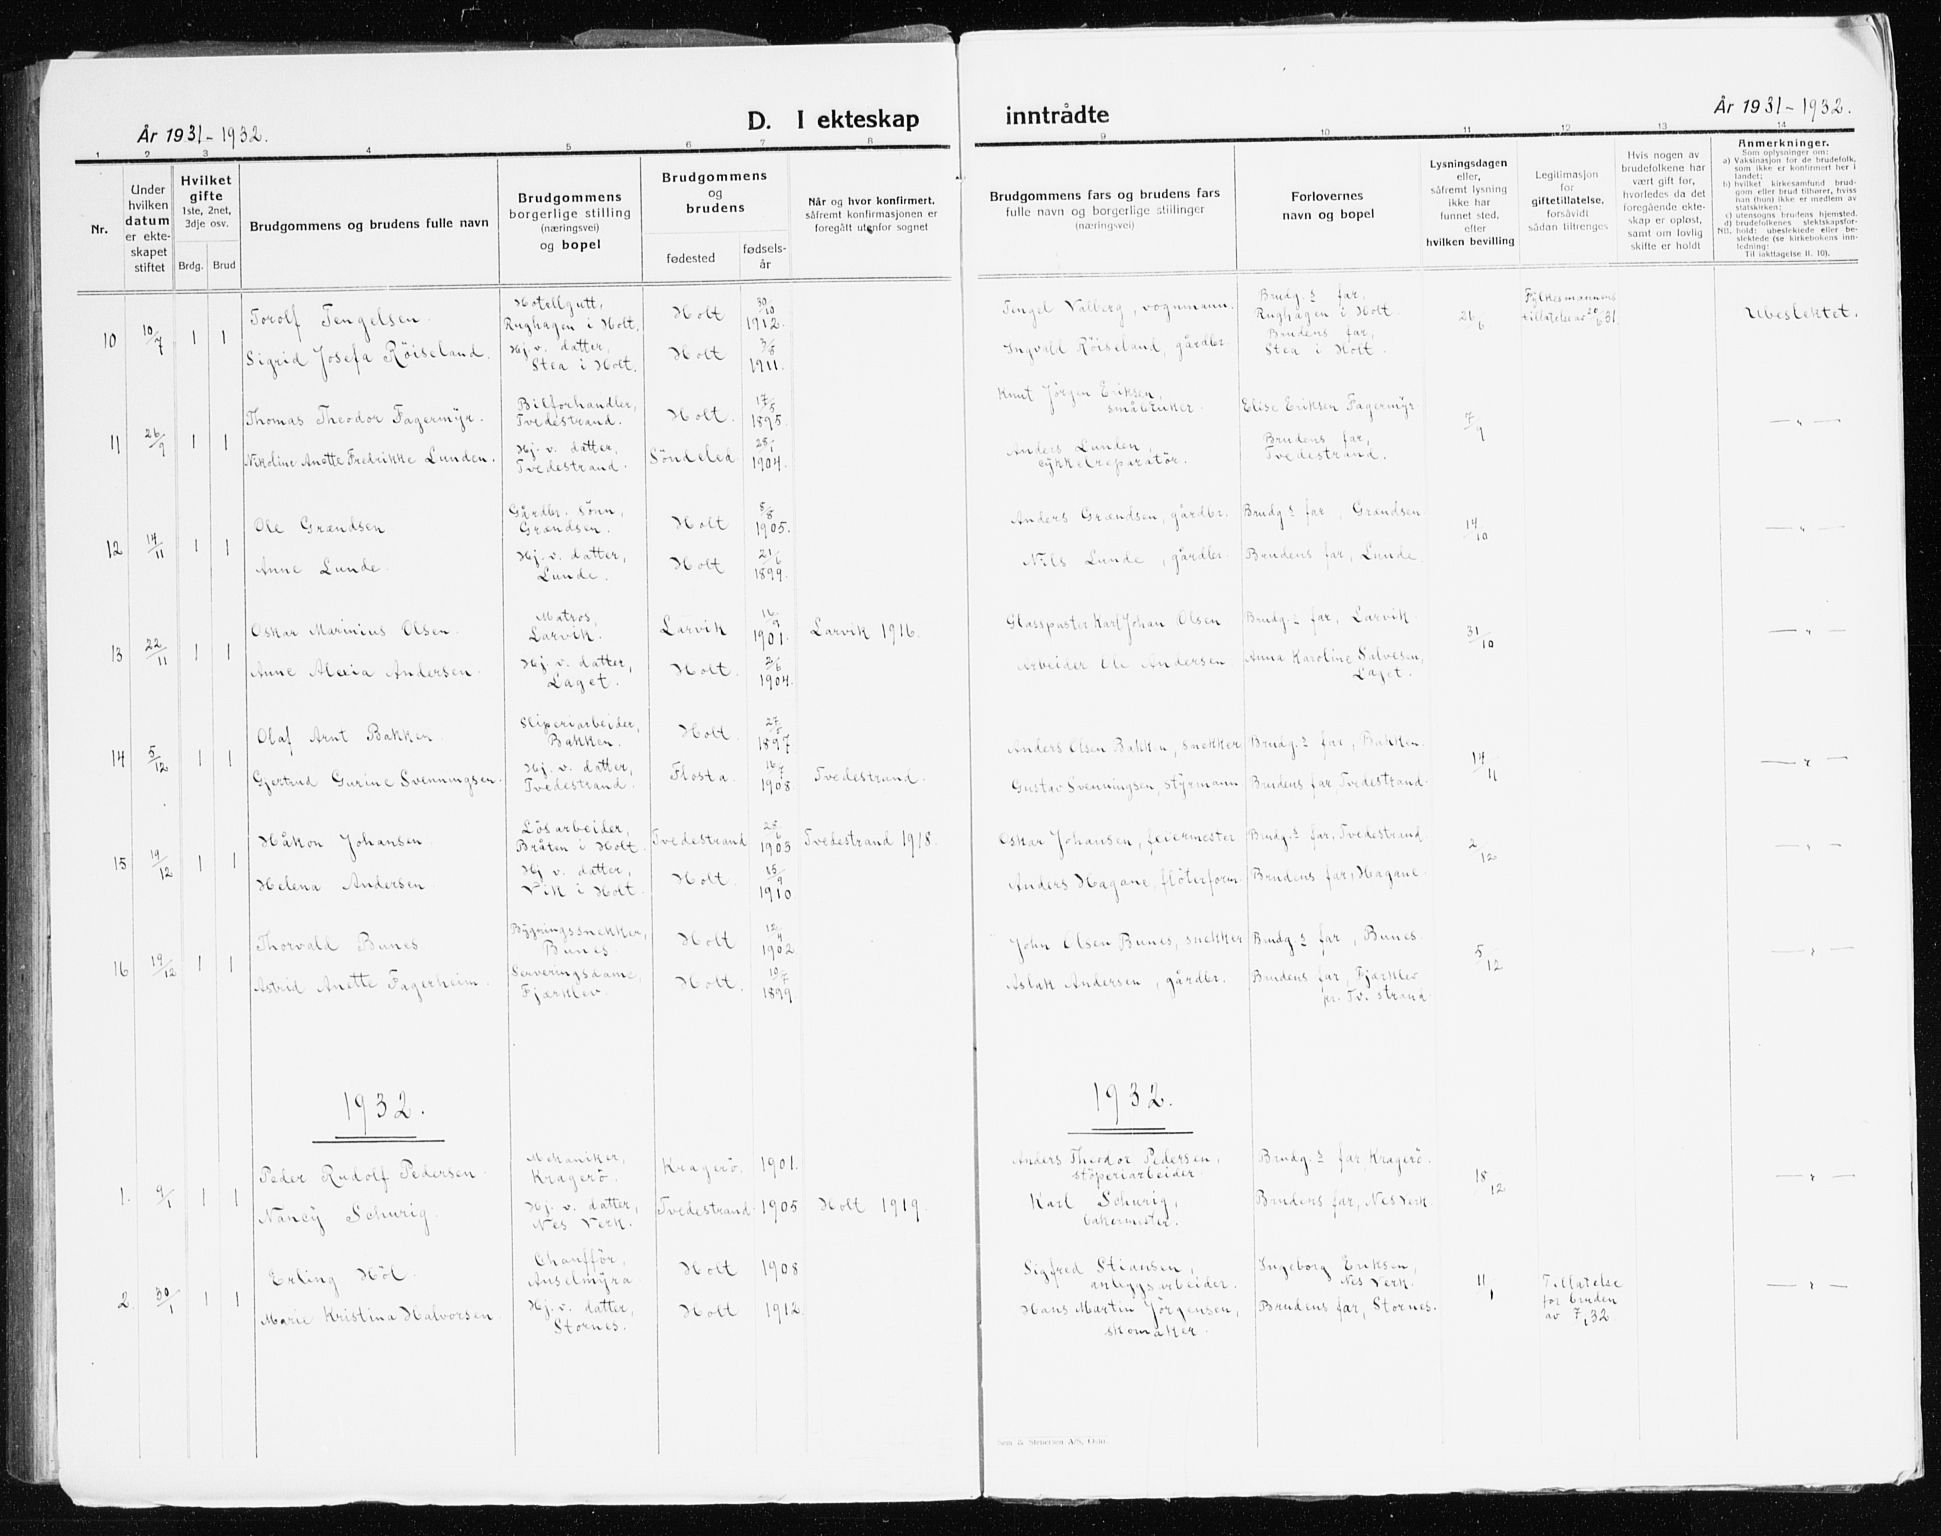 År 1931-1932.
D. I ekteskap
inntrådte
År 1931-1932.
1 2 3 4 5 6 7 8 9 10 11 12 13 14
Nr.
Under
hvilken
datum
er ekte-
skapet
stiftet
Hvilket
gifte
1ste, 2net,
3dje osv.
Brdg. Brud
Brudgommens og brudens fulle navn
Brudgommens
borgerlige stilling
(næringsvei)
og bopel
Brudgommens
og
brudens
fødested
fødsels-
år
Når og hvor konfirmert,
såfremt konfirmasjonen er
foregått utenfor sognet
Brudgommens fars og brudens fars
fulle navn og borgerlige stillinger
(næringsvei)
Forlovernes
navn og bopel
Lysningsdagen
eller,
såfremt lysning
ikke har
funnet sted,
efter
hvilken bevilling
Legitimasjon
for
giftetillatelse,
forsåvidt
sådan tiltrenges
Hvis nogen av
brudefolkene har
vært gift for,
hvorledes da det
foregående ekte-
skap er opløst,
samt om lovlig
skifte er holdt
Anmerkninger.
Som oplysninger om:
a) Vaksinasjon for de brudefolk,
som ikke er konfirmert her i
landet;
b) hvilket kirkesamfund brud-
gom eller brud tilhører, hviss
han (hun) ikke er medlem av
statskirken;
c) utensogns brudens hjemsted.
d) brudefolkenes slektskapsfor-
NB. hold: ubeslektede eller be-
slektede (se kirkebokens inn-
ledning:
Til iakttagelse II. 10).
10 10/7 1 1
Torolf Tengelsen.
Hotellgutt,
Rughagen i Holt.
Holt 30/10 1912.
Tengel Valberg, vognmann.
Brudg.s far,
Rughagen i Holt.
26/6
Fylkesmannens
tillatelse av 20/6 31.
Ubeslektet.
Sigrid Josefa Röiseland.
Hj. v. datter,
Stea i Holt.
Holt 3/8 1911.
Ingvald Röiseland, gårdbr.
Brudens far,
Stea i Holt.
11 26/9 1 1
Thomas Theodor Fagermyr.
Bilforhandler,
Tvedestrand.
Holt. 17/5 1895.
Knut Jørgen Eriksen,
småbruker.
Elise Eriksen Fagermyr
7/9
— " —
Nikoline Anette Fredrikke Lunden.
Hj. v. datter,
Tvedestrand.
Söndeled 1904.
Anders Lunden,
cykkelreparatör.
Brudens far,
Tvedestrand.
12 14/11 1 1
Ole Grændsen
Gårdbr. sönn,
Grændsen.
Holt 5/8 1905.
Anders Grændsen, gårdbr.
Brudg.s far, Grændsen
14/10
— " —
Anne Lunde.
Hj. v. datter,
Lunde.
Holt 21/6 1899.
Nils Lunde, gårdbr.
Brudens far, Lunde.
13 22/11 1 1
Oskar Marinius Olsen.
Matros,
Larvik.
Larvik 16/9 1901.
Larvik 1916.
Glasspuster Karl Johan Olsen
Brudg.s far, Larvik.
31/10
— " —
Anne Alexia Andersen.
Hj. v. datter,
Laget.
Holt. 2/6 1904.
Arbeider Ole Andersen,
Anna Karoline Salvesen,
Laget.
14 5/12 1 1
Olaf Arnt Bakken.
Sliperiarbeider,
Bakken.
Holt. 1897
Anders Olsen Bakken, snekker
Brudg.s far, Bakken.
14/11
— " —
Gjertrud Gurine Svenningsen.
Hj. v. datter,
Tvedestrand.
Flosta. 16/7 1908.
Tvedestrand.
Gustav Svenningsen, styrmann
Brudens far, Tvedestrand.
15 19/12 1 1
Håkon Johansen.
Lösarbeider,
Bråten i Holt.
Tvedestrand 1903
Tvedestrand 1918.
Oskar Johansen, feiermester.
Brudg.s far, Tvedestrand.
2/12
— " —
Helena Andersen.
Hj v. datter,
Vik i Holt.
Holt. 15/9 1910.
Anders Hagane, flöterform.
Brudens far, Hagane.
16 19/12 1 1
Thorvald Bunes
Bygningssnekker,
Bunes.
Holt 12/4 1902
John Olsen Bunes, snekker
Brudg.s far, Bunes.
5/12
— " —
Astrid Anette Fagerheim.
Serveringsdame,
Fjærklev.
Holt. 10/7 1899
Aslak Andersen, gårdbr.
Brudens far, Fjærklev
pr. Tv. strand.
1932.
1932.
1. 9/1 1 1
Peder Rudolf Pedersen.
Mekaniker,
Kragerö.
Kragerö. 1901.
Anders Theodor Pedersen,
stöperiarbeider.
Brudg.s far, Kragerö.
18/12
— " —
Nancy Schurig.
Hj. v. datter,
Nes Verk.
Tvedestrand. 1905
Holt 1919.
Karl Schurig,
bakermester.
Brudens far, Nes Verk.
2. 30/1 1 1
Erling Höl.
Chafför,
Anselmyra
Holt 1908
Sigfred Stiansen,
anleggsarbeider.
Ingeborg Eriksen,
Nes Verk.
11/1
Tillatelse
for bruden
av 7/1 32.
— " —
Marie Kristina Halvorsen.
Hj. v. datter,
Stornes.
Holt 1912.
Hans Martin Jörgensen,
skomaker.
Brudens far, Stornes.
Sem & Stenersen A/S, Oslo.